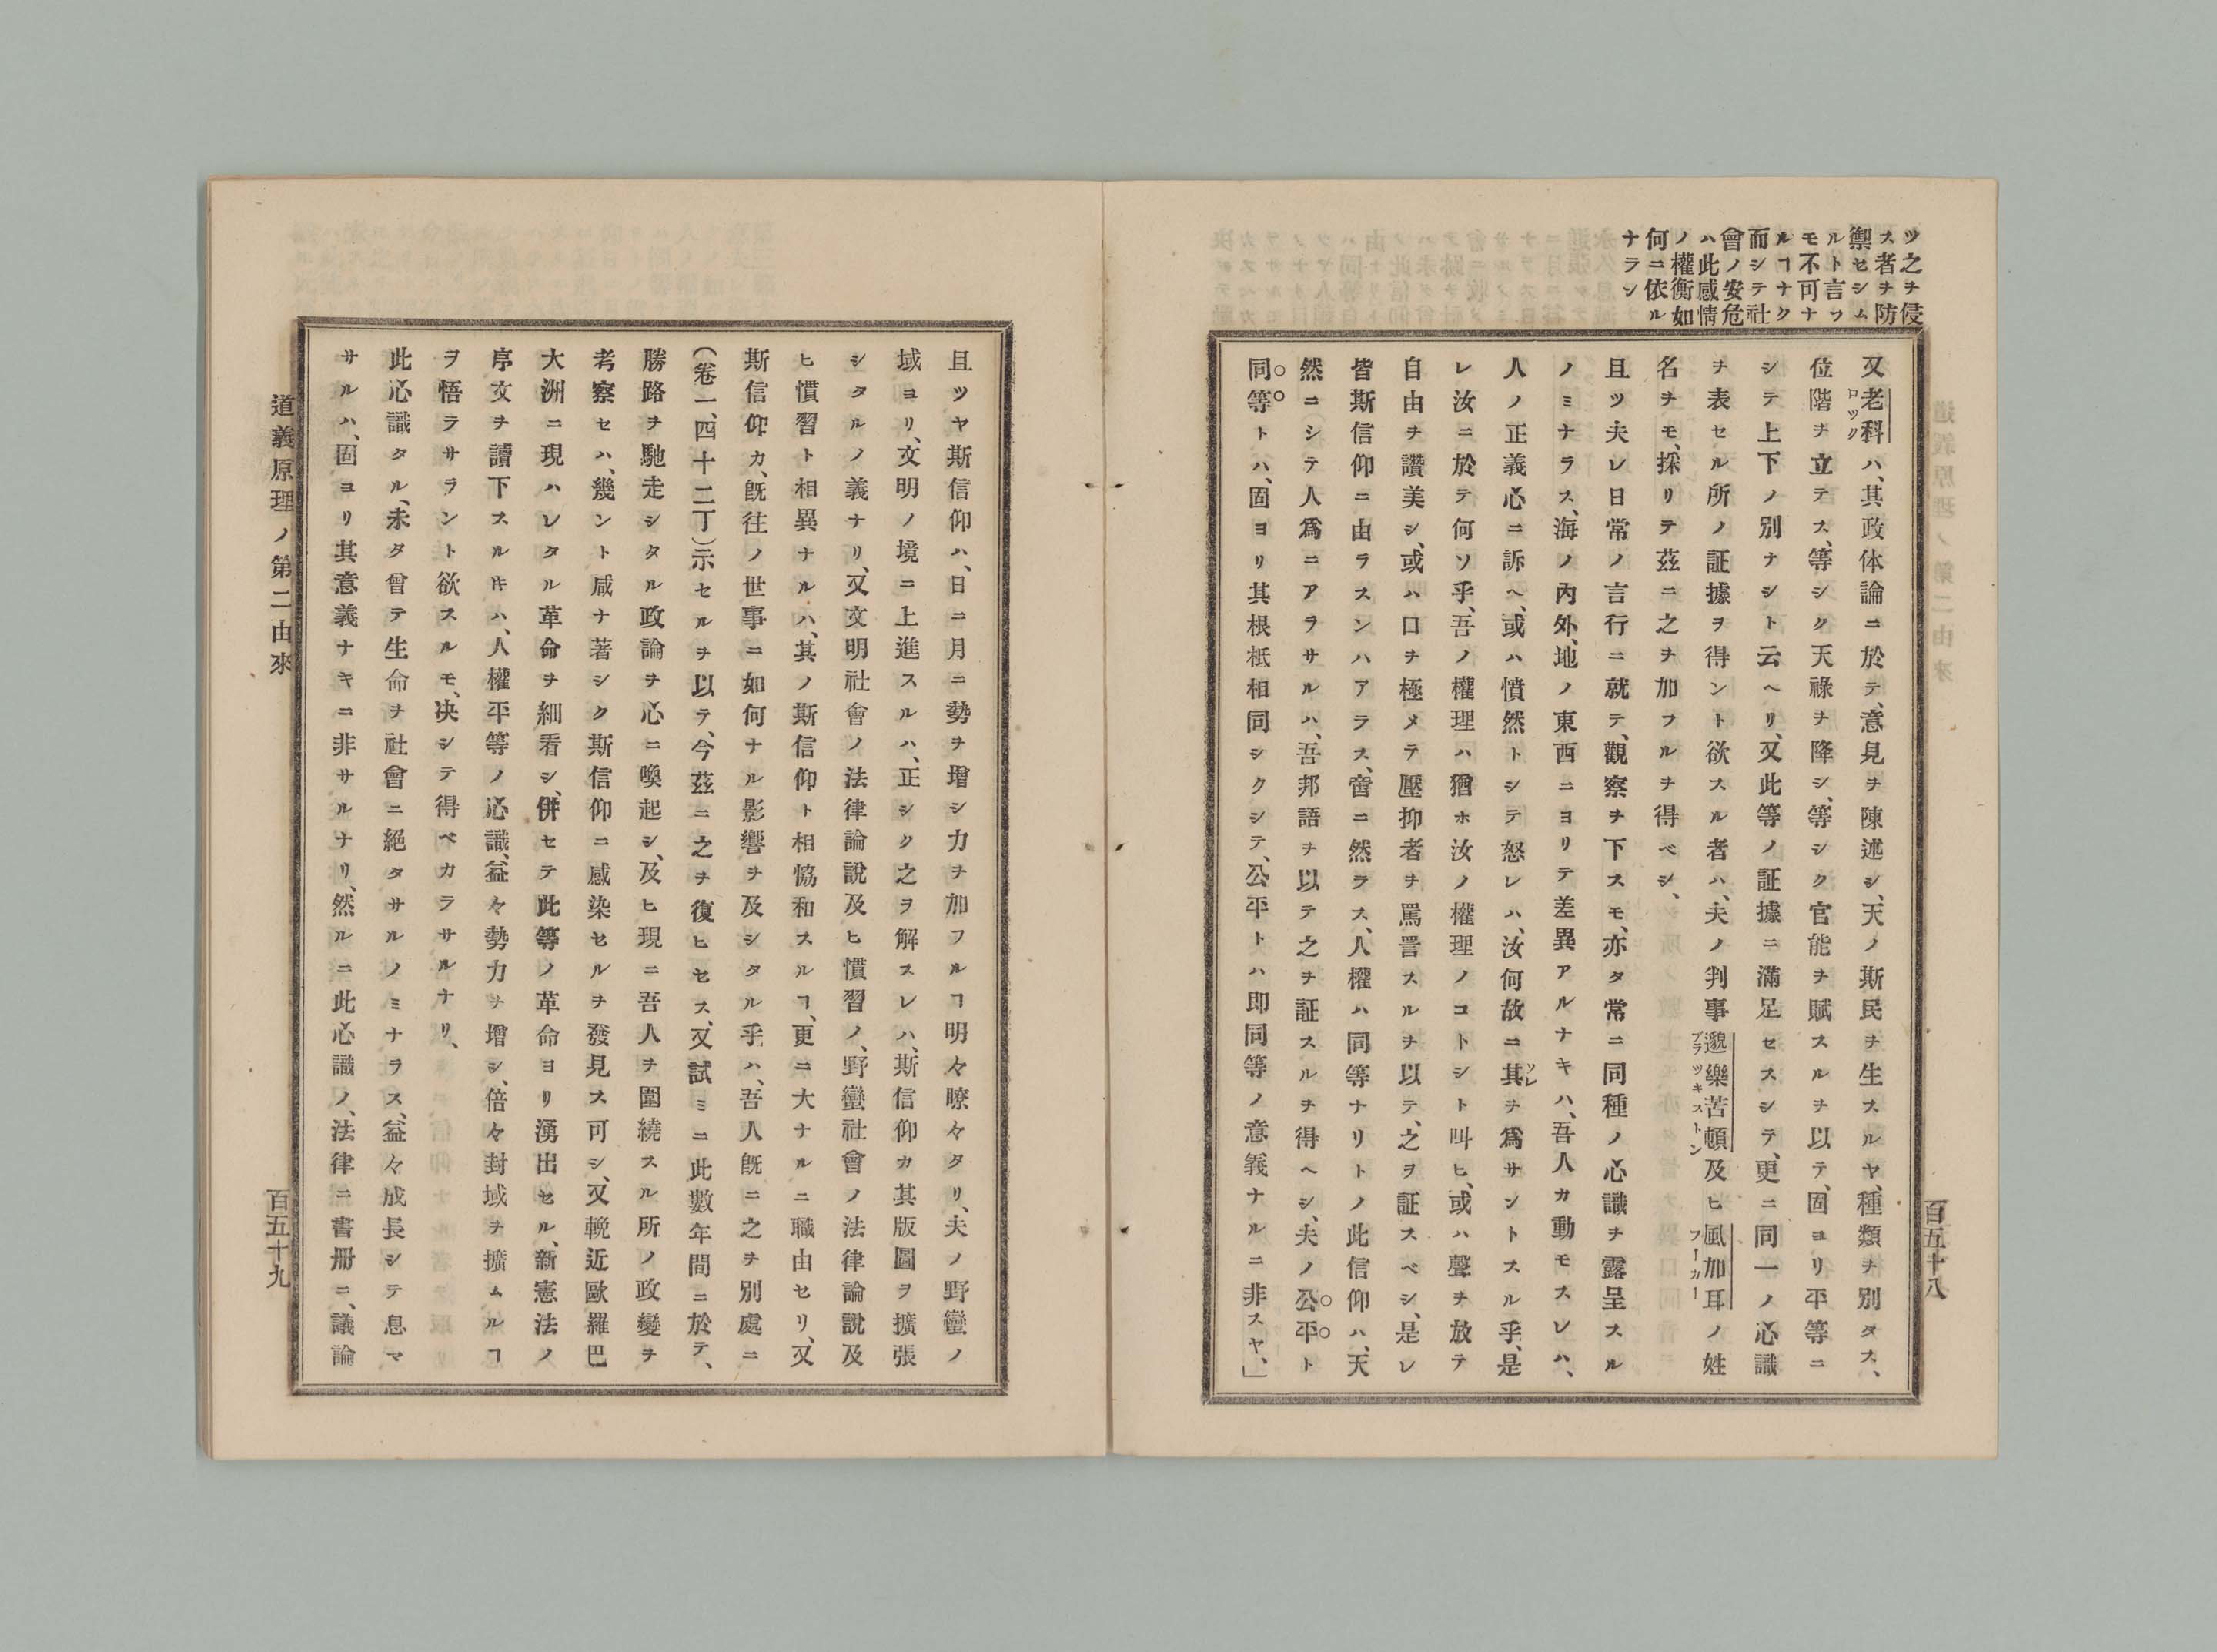 ツ之ヲ侵
ス者ヲ防
禦セシム
ルト言フ
モ不可ナ
ルヿナク
而シテ社
會ノ安危
ハ此感情
ノ權衡如
何ニ依ル
ナラン
又老科ハ、其政体論ニ於テ、意見ヲ陳述シ、天ノ斯民ヲ生スルヤ、種類ヲ別タス、
ロック
位階ヲ立テス、等シク天祿ヲ降シ、等シク官能ヲ賦スルヲ以テ、固ヨリ平等ニ
シテ上下ノ別ナシト云ヘリ、又此等ノ証據ニ滿足セスシテ、更ニ同一ノ心識
ヲ表セル所ノ証據ヲ得ント欲スル者ハ、夫ノ判事邈樂苦頓及ヒ風加耳ノ姓
ブラツキストン
フーカー
名ヲモ、採リテ茲ニ之ヲ加フルヲ得ベシ、
且ツ夫レ日常ノ言行ニ就テ、觀察ヲ下スモ、亦タ常ニ同種ノ心識ヲ露呈スル
ノミナラス、海ノ內外、地ノ東西ニヨリテ差異アルナキハ、吾人カ動モスレハ、
人ノ正義心ニ訴ヘ、或ハ憤然トシテ怒レハ、汝何故ニ其ヲ爲サントスル乎、是
ソレ
レ汝ニ於テ何ソ乎、吾ノ權理ハ猶ホ汝ノ權理ノコトシト叫ヒ、或ハ聲ヲ放テ
自由ヲ讚美シ、或ハ口ヲ極メテ壓抑者ヲ罵詈スルヲ以テ、之ヲ証スベシ、是レ
皆斯信仰ニ由ラスンハアラス、啻ニ然ラス、人權ハ同等ナリトノ此信仰ハ、天
然ニシテ人爲ニアラサルハ、吾邦語ヲ以テ之ヲ証スルヲ得ヘシ、夫ノ公平ト
同等トハ、固ヨリ其根柢相同シクシテ、公平トハ即同等ノ意義ナルニ非スヤ、」
百五十八
且ツヤ斯信仰ハ、日ニ月ニ勢ヲ增シ力ヲ加フルヿ明々瞭々タリ、夫ノ野蠻ノ
域ヨリ、文明ノ境ニ上進スルハ、正シク之ヲ解スレハ、斯信仰カ其版圖ヲ擴張
シタルノ義ナリ、又文明社會ノ法律論說及ヒ慣習ノ、野蠻社會ノ法律論說及
ヒ慣習ト相異ナルハ、其ノ斯信仰ト相恊和スルヿ、更ニ大ナルニ職由セリ、又
斯信仰カ、旣往ノ世事ニ如何ナル影響ヲ及シタル乎ハ、吾人旣ニ之ヲ別處ニ
(卷一、四十二丁)示セルヲ以テ、今茲ニ之ヲ復ヒセス、又試ミニ此數年間ニ於テ、
勝路ヲ馳走シタル政論ヲ心ニ喚起シ、及ヒ現ニ吾人ヲ圍繞スル所ノ政變ヲ
考察セハ、幾ント咸ナ著シク斯信仰ニ感染セルヲ發見ス可シ、又輓近歐羅巴
大洲ニ現ハレタル革命ヲ細看シ、併セテ此等ノ革命ヨリ湧出セル、新憲法ノ
序文ヲ讀下スル𪜈ハ、人權平等ノ心識、益々勢力ヲ增シ、倍々封域ヲ擴ムルヿ
ヲ悟ラサラント欲スルモ、决シテ得ベカラサルナリ、
此心識タル、未タ曾テ生命ヲ社會ニ絕タサルノミナラス、益々成長シテ息マ
サルハ、固ヨリ其意義ナキニ非サルナリ、然ルニ此心識ノ、法律ニ書冊ニ、議論
道義原理ノ第二由來
百五十九